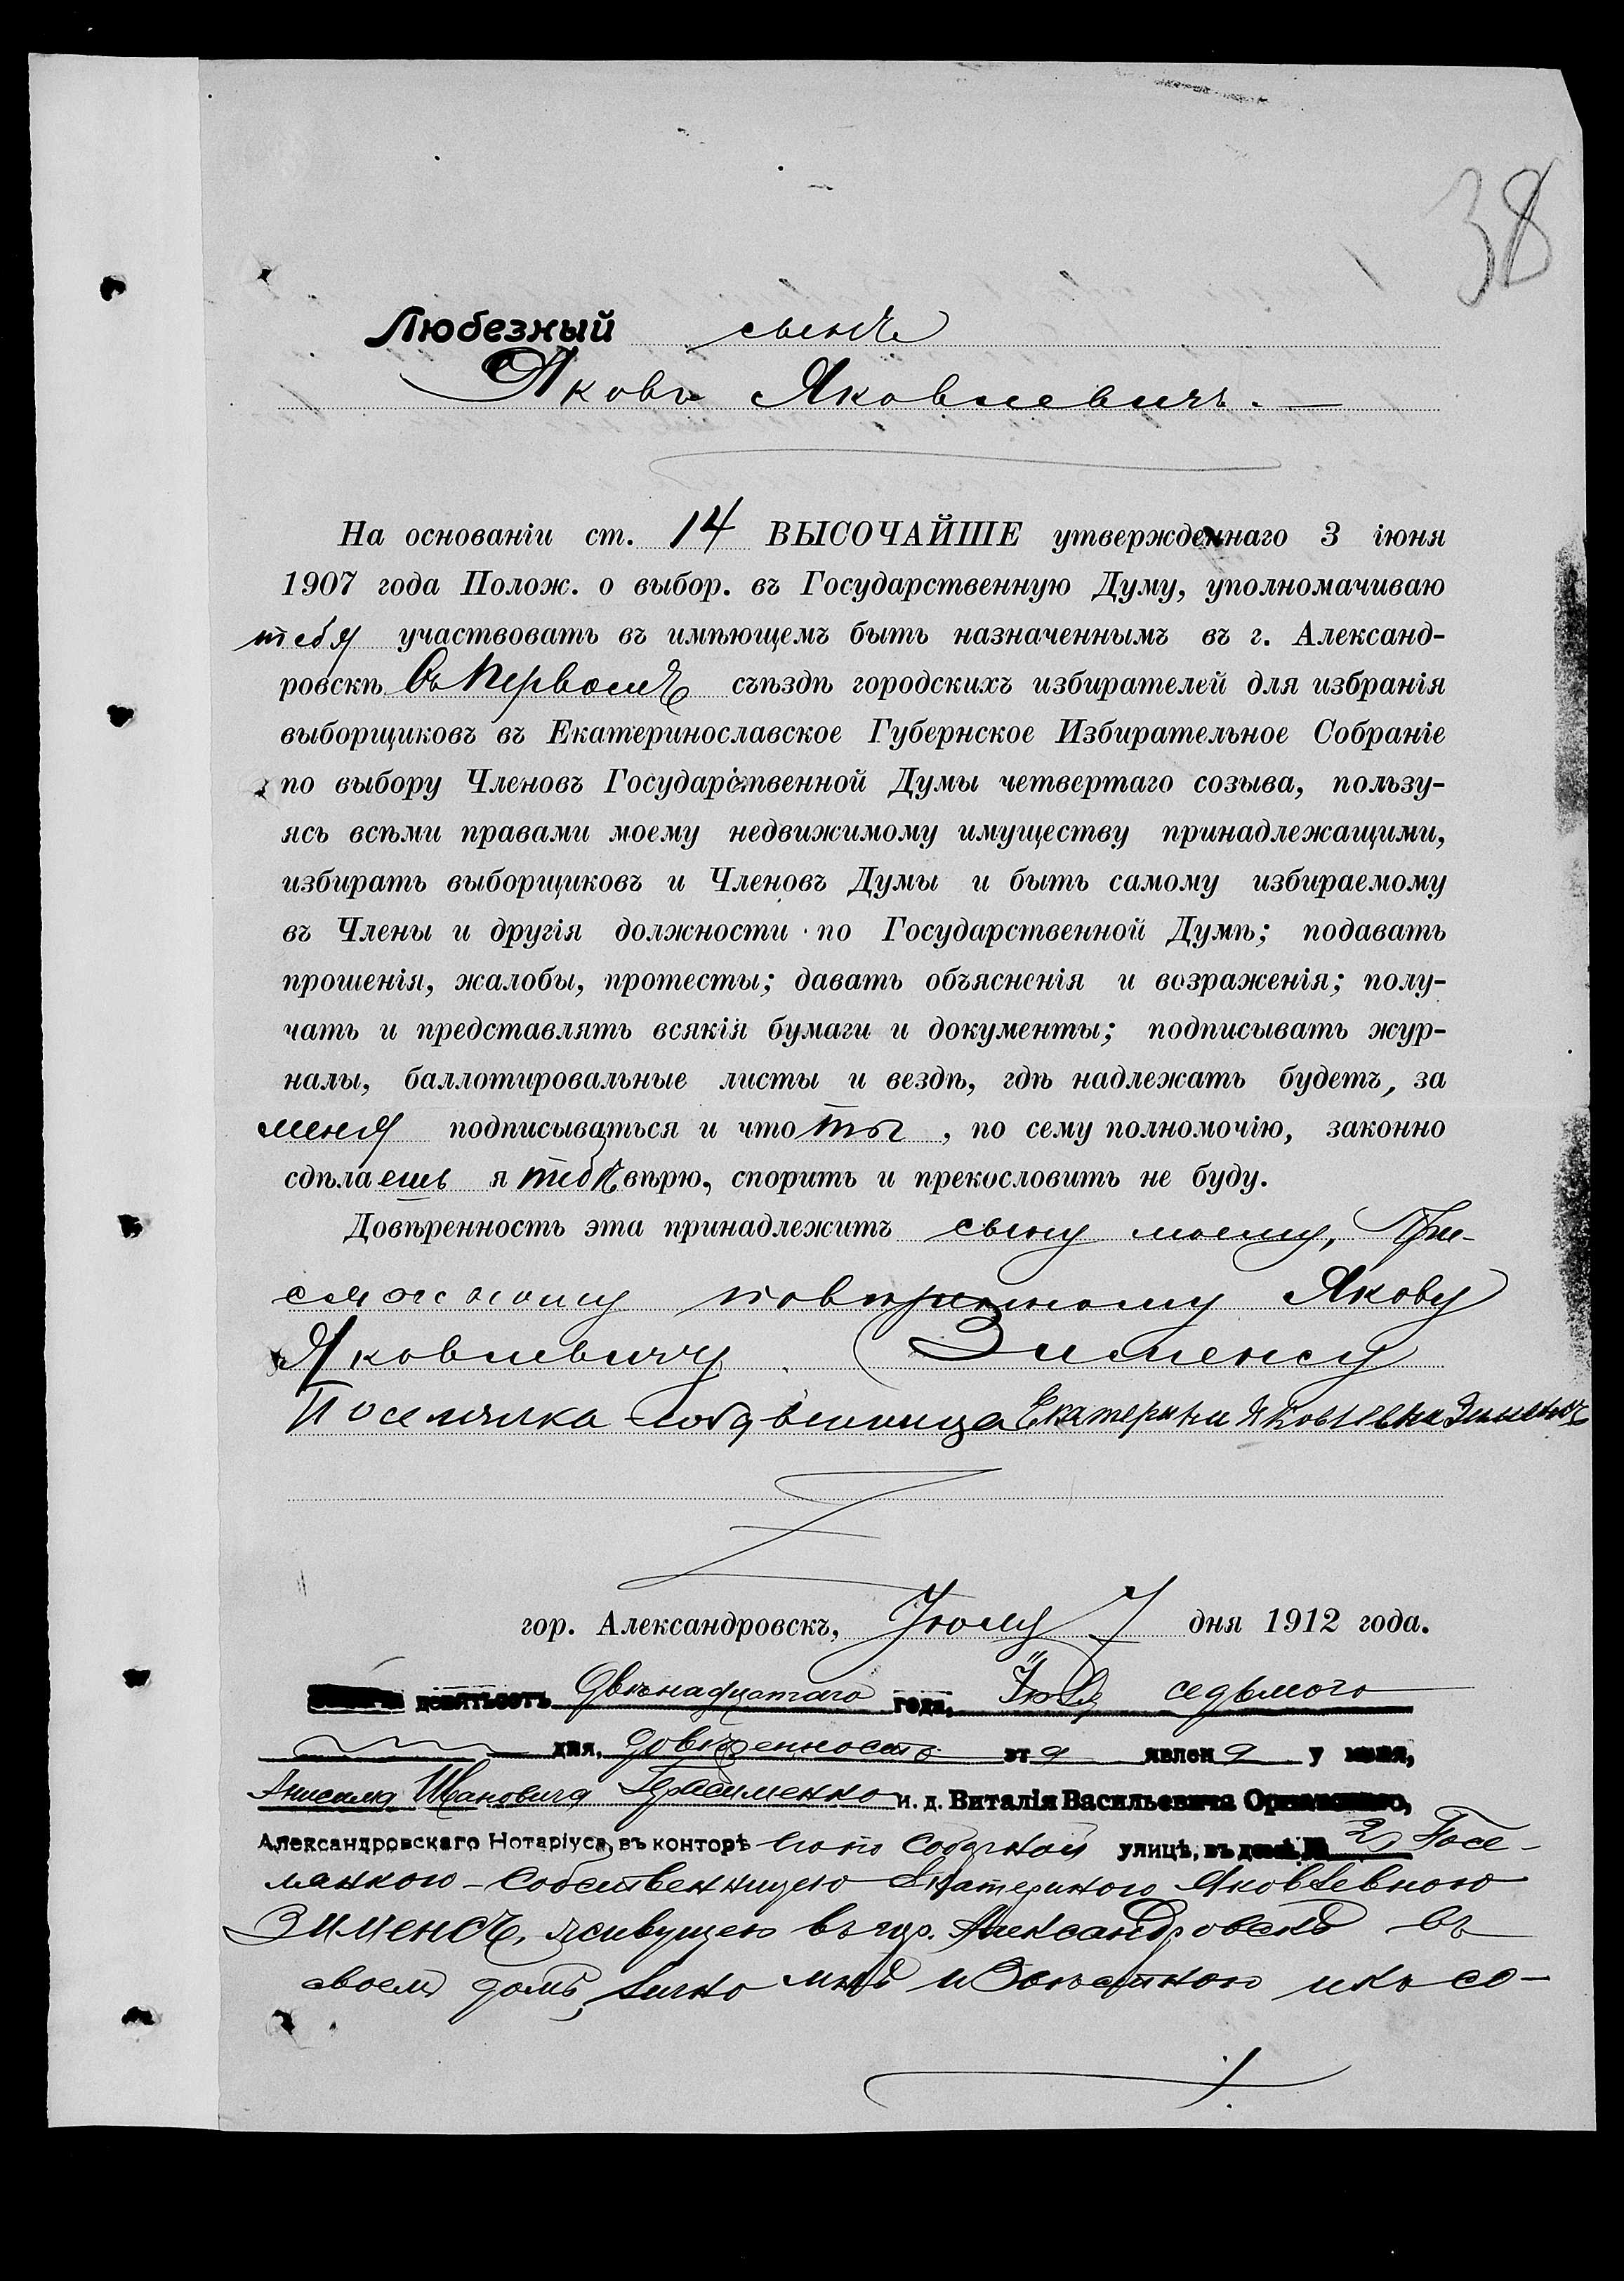 38
Любезный сынъ
Яковъ Яковлевичъ. —
На основаніи ст. 14 ВЫСОЧАЙШЕ утвержденнаго 3 іюня
1907 года Полож. о выбор. въ Государственную Думу, уполномачиваю
тебя участвовать въ имѣющемъ быть назначеннымъ въ г. Александ-
ровскѣ въ первомъ съѣздѣ городскихъ избирателей для избранія
выборщиковъ въ Екатеринославское Губернское Избирательное Собраніе
по выбору Членовъ Государственной Думы четвертаго созыва, пользу-
ясь всѣми правами моему недвижимому имуществу принадлежащими,
избирать выборщиковъ и Членовъ Думы и быть самому избираемому
въ Члены и другія должности по Государственной Думѣ; подавать
прошенія, жалобы, протесты; давать объясненія и возраженія; полу-
чать и представлять всякія бумаги и документы; подписывать жур-
налы, баллотировальные листы и вездѣ, гдѣ надлежать будетъ, за
меня подписываться и что ты, по сему полномочію, законно
сдѣлаешь я тебѣ вѣрю, спорить и прекословить не буду.
Довѣренность эта принадлежитъ сыну моему, При-
сяжному повѣренному Якову
Яковлевичу Зименсу
Поселянка-собственница Екатерина Яковлевна Зименсъ
гор. Александровскъ, Іюля 7 дня 1912 года.
девятьсотъ двѣнадцатаго года, Іюля седьмого
дня, довѣренность эта явлена у меня,
Анисима Ивановича Герасименко и. д. Виталія Васильевича
Александровскаго Нотаріуса, въ конторѣ по Соборной улицѣ, въ домѣ № 2, Посе-
лянкою-собственницею Екатериною Яковлевною
Зименсъ, живущею въ гор. Александровскѣ въ
своемъ домѣ, лично мнѣ извѣстною и къ со-